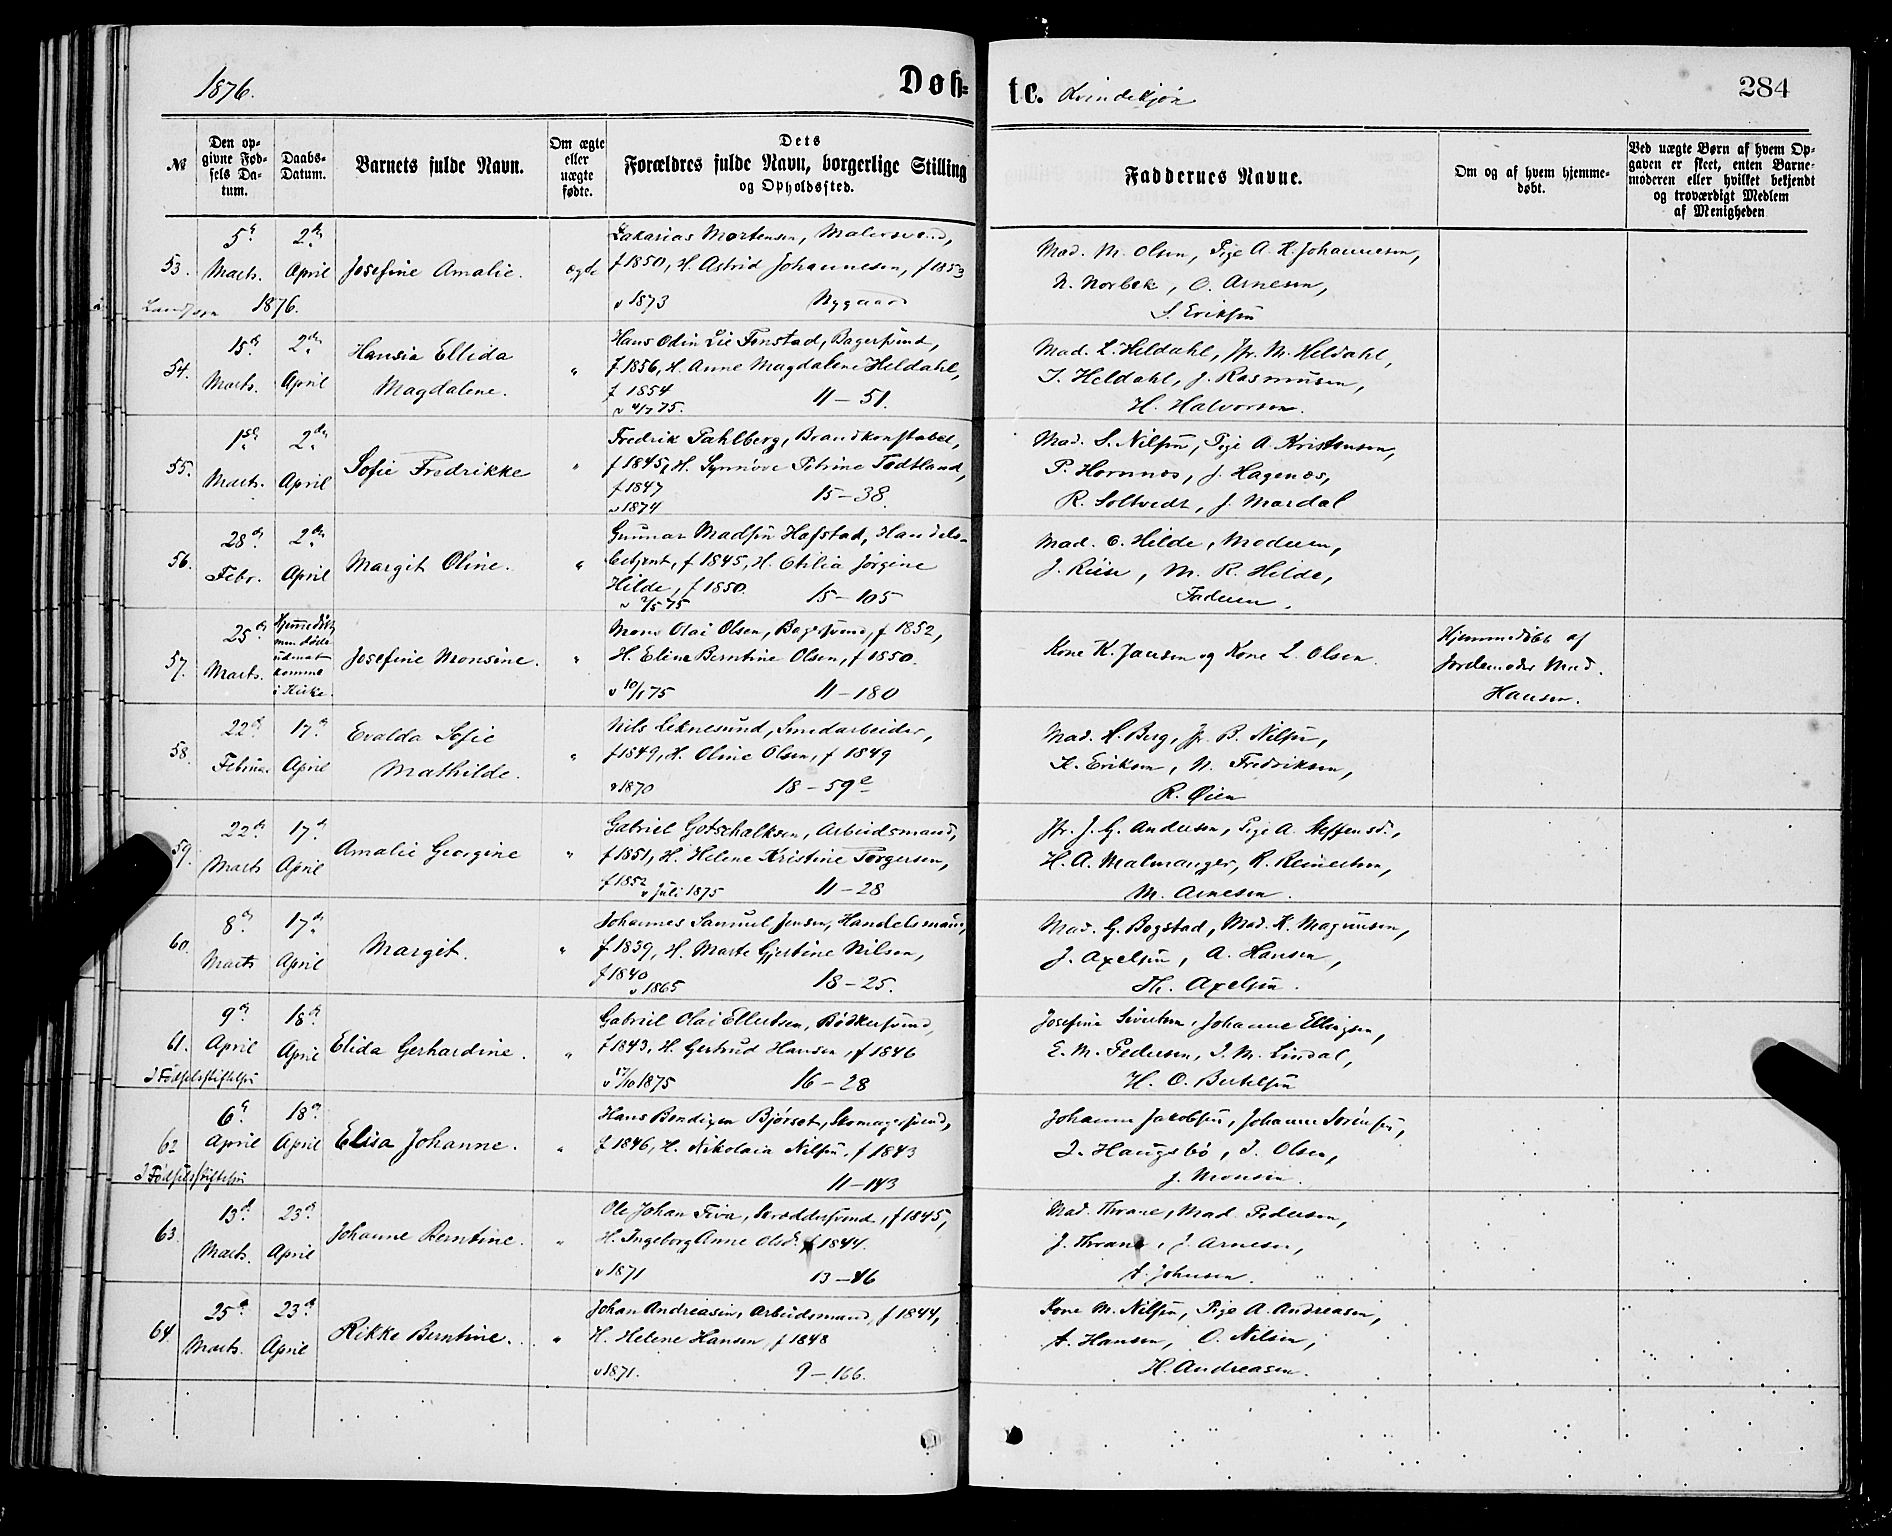 1876.
Døb=
te. Kvindekjøn
284
№
Den op=
givne Fød=
sels Da=
tum.
Daabs=
Datum.
Barnets fulde Navn.
Om ægte
eller
uægte
fødte.
Dets
Forældres fulde Navn, borgerlige Stilling
og Opholdssted.
Faddernes Navne.
Om og af hvem hjemme=
døbt.
Ved uægte Børn af hvem Op=
gaven er skeet, enten Barne=
moderen eller hvilket bekjendt
og troværdigt Medlem
af Menigheden
53.
5te Marts.
2den April
Josefine Amalie.
ægte
Zakarias Mortensen, Malersvend,
f 1850, H. Astrid Johannesen, f 1853
v 1873 Nygaard
Mad. M. Olsen, Pige A. K. Johannesen,
N. Norbek, O. Arnesen,
S. Eriksen
1876.
54.
15de Marts.
2den April
Hansia Ellida
Magdalene.
"
Hans Odin Lie Fenstad, Bagersvend,
f 1856, H. Anne Magdalene Heldahl,
f 1854
v 4/7 75. 11 – 51.
Mad. L. Heldahl, Jfr. M. Heldahl,
I. Heldahl, J. Rasmusen,
H. Halvorsen.
55.
1ste Marts.
2den April
Sofie Fredrikke
"
Fredrik Pahlberg, Brandkonstabel,
f 1845, H. Synnöve Petrine Todtland,
f 1847
v 1874 15 – 38.
Mad. S. Nilsen, Pige A. Kristensen,
P. Hornnes, J. Hagenes,
R. Soltvedt, J. Mardal
56.
28de Febr.
2den April
Margit Oline.
"
Gunnar Madsen Hafstad, Handels=
betjent, f 1845, H. Othilia Jørgine
Hilde, f 1850.
v 2/5 75 15 – 105
Mad. O. Hilde, Moderen,
J. Riise, M. R. Hilde,
Faderen.
57.
25de Marts.
Hjemmedöbt,
men døde
uden at
komme
i Kirke.
Josefine Monsine.
"
Mons Olai Olsen, Bagersvend, f 1852,
H. Eline Berntine Olsen, f 1850.
v 10/1 75 11 – 180
Kone K. Jansen og Kone L. Olsen.
Hjemmedöbt af
Jordemoder Mad.
Hansen.
58.
22de Februar
17de April
Evalda Sofie
Mathilde.
"
Nils Leknesund, Smedarbeider,
f 1849, H. Oline Olsen, f 1849
v 1870 18 – 59a
Mad. H. Berg, Jfr. B. Nilsen,
K. Eriksen, N. Fredriksen,
R. Øien
59.
22de Marts
17de April
Amalie Georgine
"
Gabriel Gotschalksen, Arbeidsmand,
f 1851, H. Helene Kristine Torgersen,
f 1852
v Juli 1875 11 – 28
Jfr. J. G. Andersen, Pige A. Steffensd.,
H. A. Malmanger, R. Reinertsen,
M. Arnesen.
60.
8de Marts
17de April
Margit.
"
Johannes Samuel Jensen, Handelsmand,
f 1839, H. Marte Gjertine Nilsen,
f 1840
v 1865 18 – 25.
Mad. G. Bogstad, Mad. K. Magnusen,
J. Axelsen, A. Hansen,
Th. Axelsen.
61.
9de April
18de April
Elida Gerhardine.
"
I Fødselsstiftelsen
Gabriel Olai Ellertsen, Bödkersvend,
f 1843, H. Gertrud Hansen, f 1846
v 17/10 1875 16 – 28
Josefine Sivertsen, Johanne Ellingsen,
E. M. Pedersen, I. M. Lindal,
H. O. Bertelsen
62
6te April
18de April
Elisa Johanne.
"
I Fødselsstiftelsen
Hans Bendixen Bjørset, Skomagersvend,
f 1846, H. Nikolaia Nilsen, f 1843
11 – 143
Johanne Jacobsen, Johanne Sørensen,
I. Haugsbö, I. Olsen,
J. Monsen.
63.
13de Marts.
23de April
Johanne Berntine.
"
Ole Johan Five, Skræddersvend, f 1845,
H. Ingeborg Anne Olsd. f 1844.
v 1871 13 – 46
Mad. Thrane, Mad. Pedersen,
J. Thrane, J. Arnesen,
A. Johnsen.
64.
25de Marts.
23de April
Rikke Berntine.
"
Johan Andreasen, Arbeidsmand, f 1844,
H. Helene Hansen, f 1848
v 1871. 9 – 166.
Kone M. Nilsen, Pige A. Andreasen,
A. Hansen, O. Nilsen,
H. Andreasen.